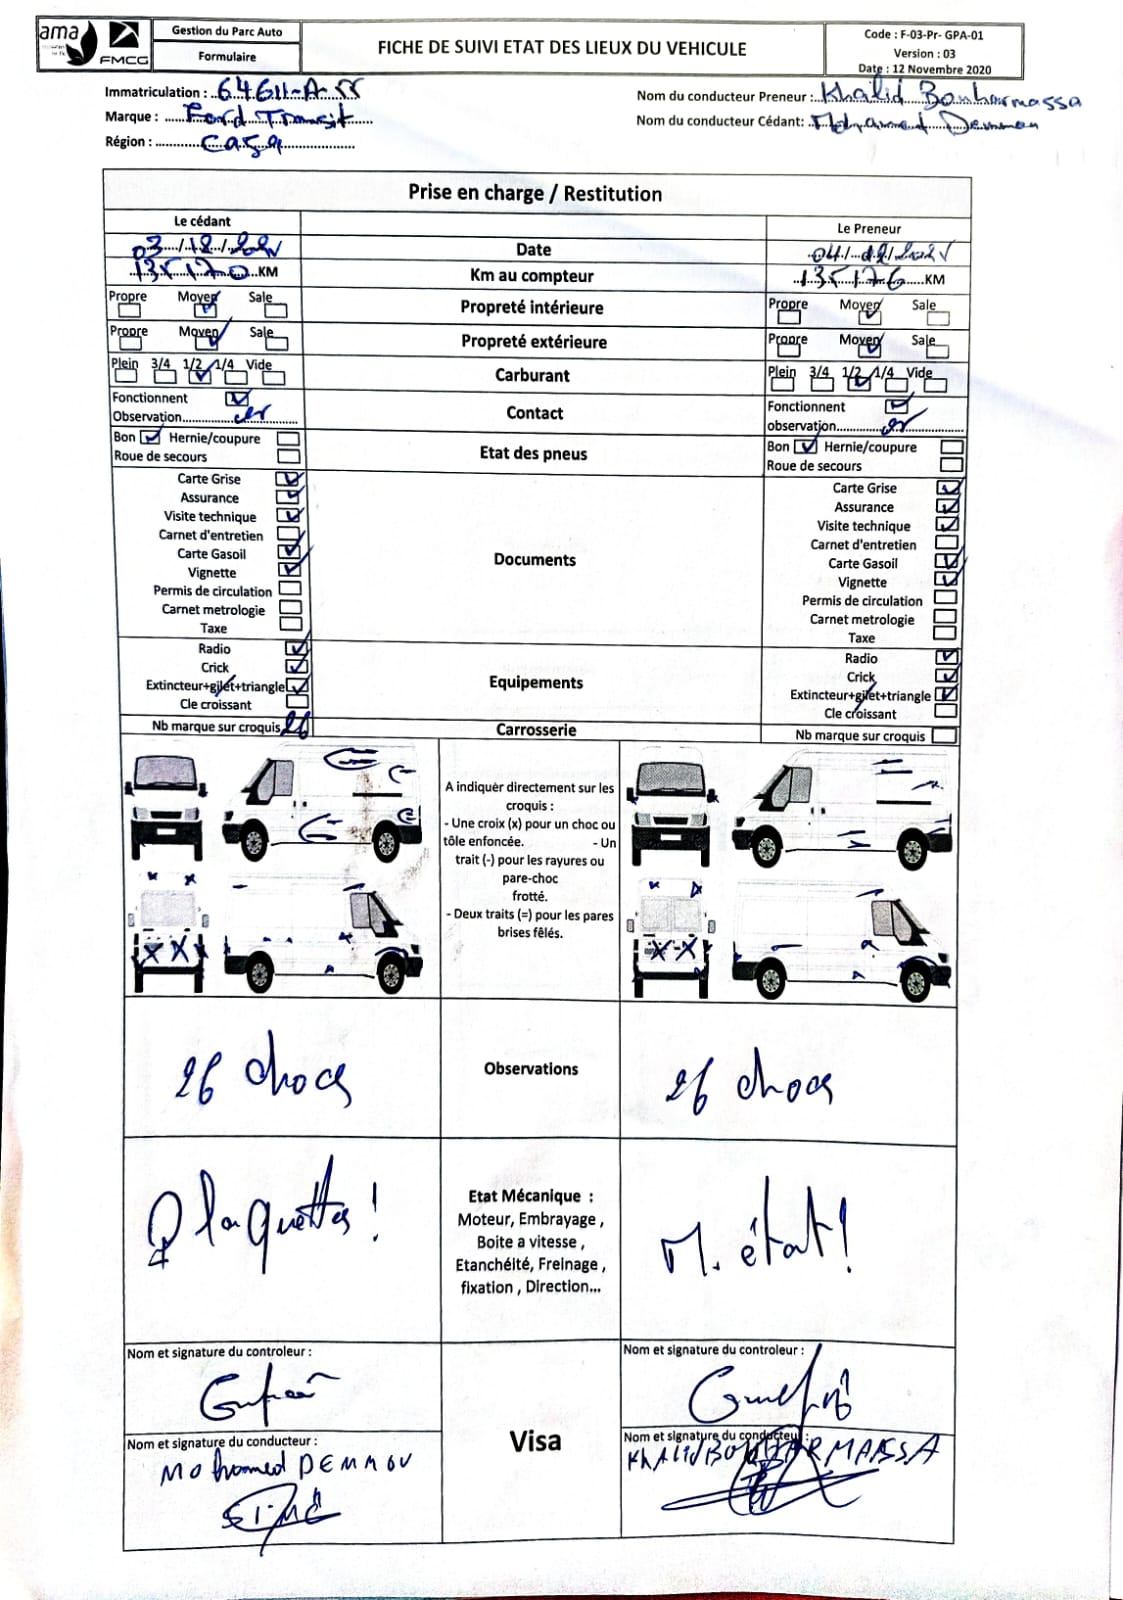 ama
FMCG
Gestion du Parc Auto
Formulaire
FICHE DE SUIVI ETAT DES LIEUX DU VEHICULE
Code : F-03-Pr- GPA-01
Version : 03
Date : 12 Novembre 2020
Immatriculation : 64611-A-55
Marque : Ford Transit
Région : Casa
Nom du conducteur Preneur : Khalid Bouharmassa
Nom du conducteur Cédant: Mohammed Demmou
Prise en charge / Restitution
Le cédant
Le Preneur
03/12/ Date 04/12/
135170 KM Km au compteur 135176 KM
Propre Moyen Sale Propreté intérieure Propre Moyen Sale
Propre Moyen Sale Propreté extérieure Propre Moyen Sale
Plein 3/4 1/2 1/4 Vide Carburant Plein 3/4 1/2 1/4 Vide
Fonctionnent Contact Fonctionnent
Observation observation
Bon Hernie/coupure Etat des pneus Bon Hernie/coupure
Roue de secours Roue de secours
Carte Grise Carte Grise
Assurance Assurance
Visite technique Visite technique
Carnet d'entretien Carnet d'entretien
Carte Gasoil Documents Carte Gasoil
Vignette Vignette
Permis de circulation Permis de circulation
Carnet metrologie Carnet metrologie
Taxe Taxe
Radio Radio
Crick Crick
Extincteur+gilet+triangle Equipements Extincteur+gilet+triangle
Cle croissant Cle croissant
Nb marque sur croquis 26 Carrosserie Nb marque sur croquis
A indiquer directement sur les
croquis :
- Une croix (x) pour un choc ou
tôle enfoncée. - Un
trait (-) pour les rayures ou
pare-choc
frotté.
- Deux traits (=) pour les pares
brises fêlés.
26 chocs Observations 26 chocs
Plaquettes ! M. état !
Etat Mécanique :
Moteur, Embrayage ,
Boite a vitesse ,
Etanchéité, Freinage ,
fixation , Direction...
Nom et signature du controleur : Nom et signature du controleur :
Visa
Nom et signature du conducteur : Nom et signature du conducteur :
Mohamed DEMMOU KHALID BOUHARMASSA